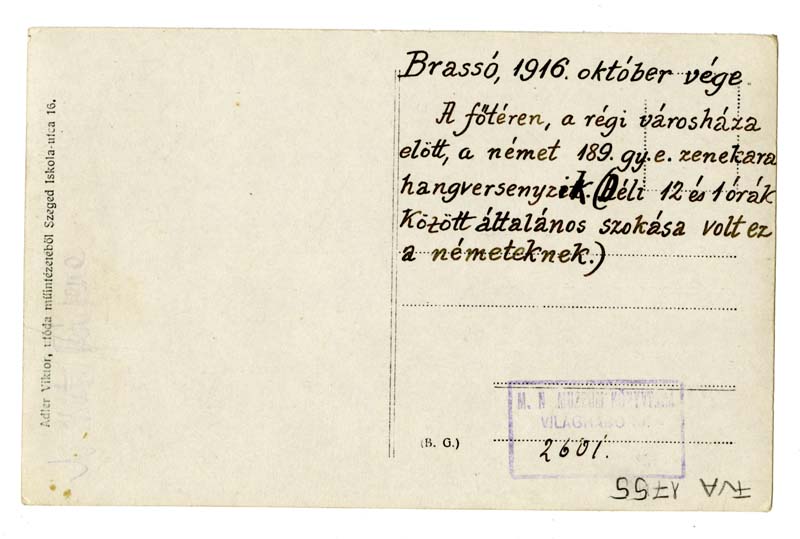 Brassó, 1916. október vége
A főtéren, a régi városháza
előtt, a német 189. gy. e. zenekara
hangversenyzik. (Déli 12 és 1 órák
között általános szokása volt ez
a németeknek.)
Adler Viktor, utóda műintézetéből Szeged Iskola-utca 16.
(B. G.)
M. N. MUZEUM KÖNYVTÁRA
2601.
FVA 1755